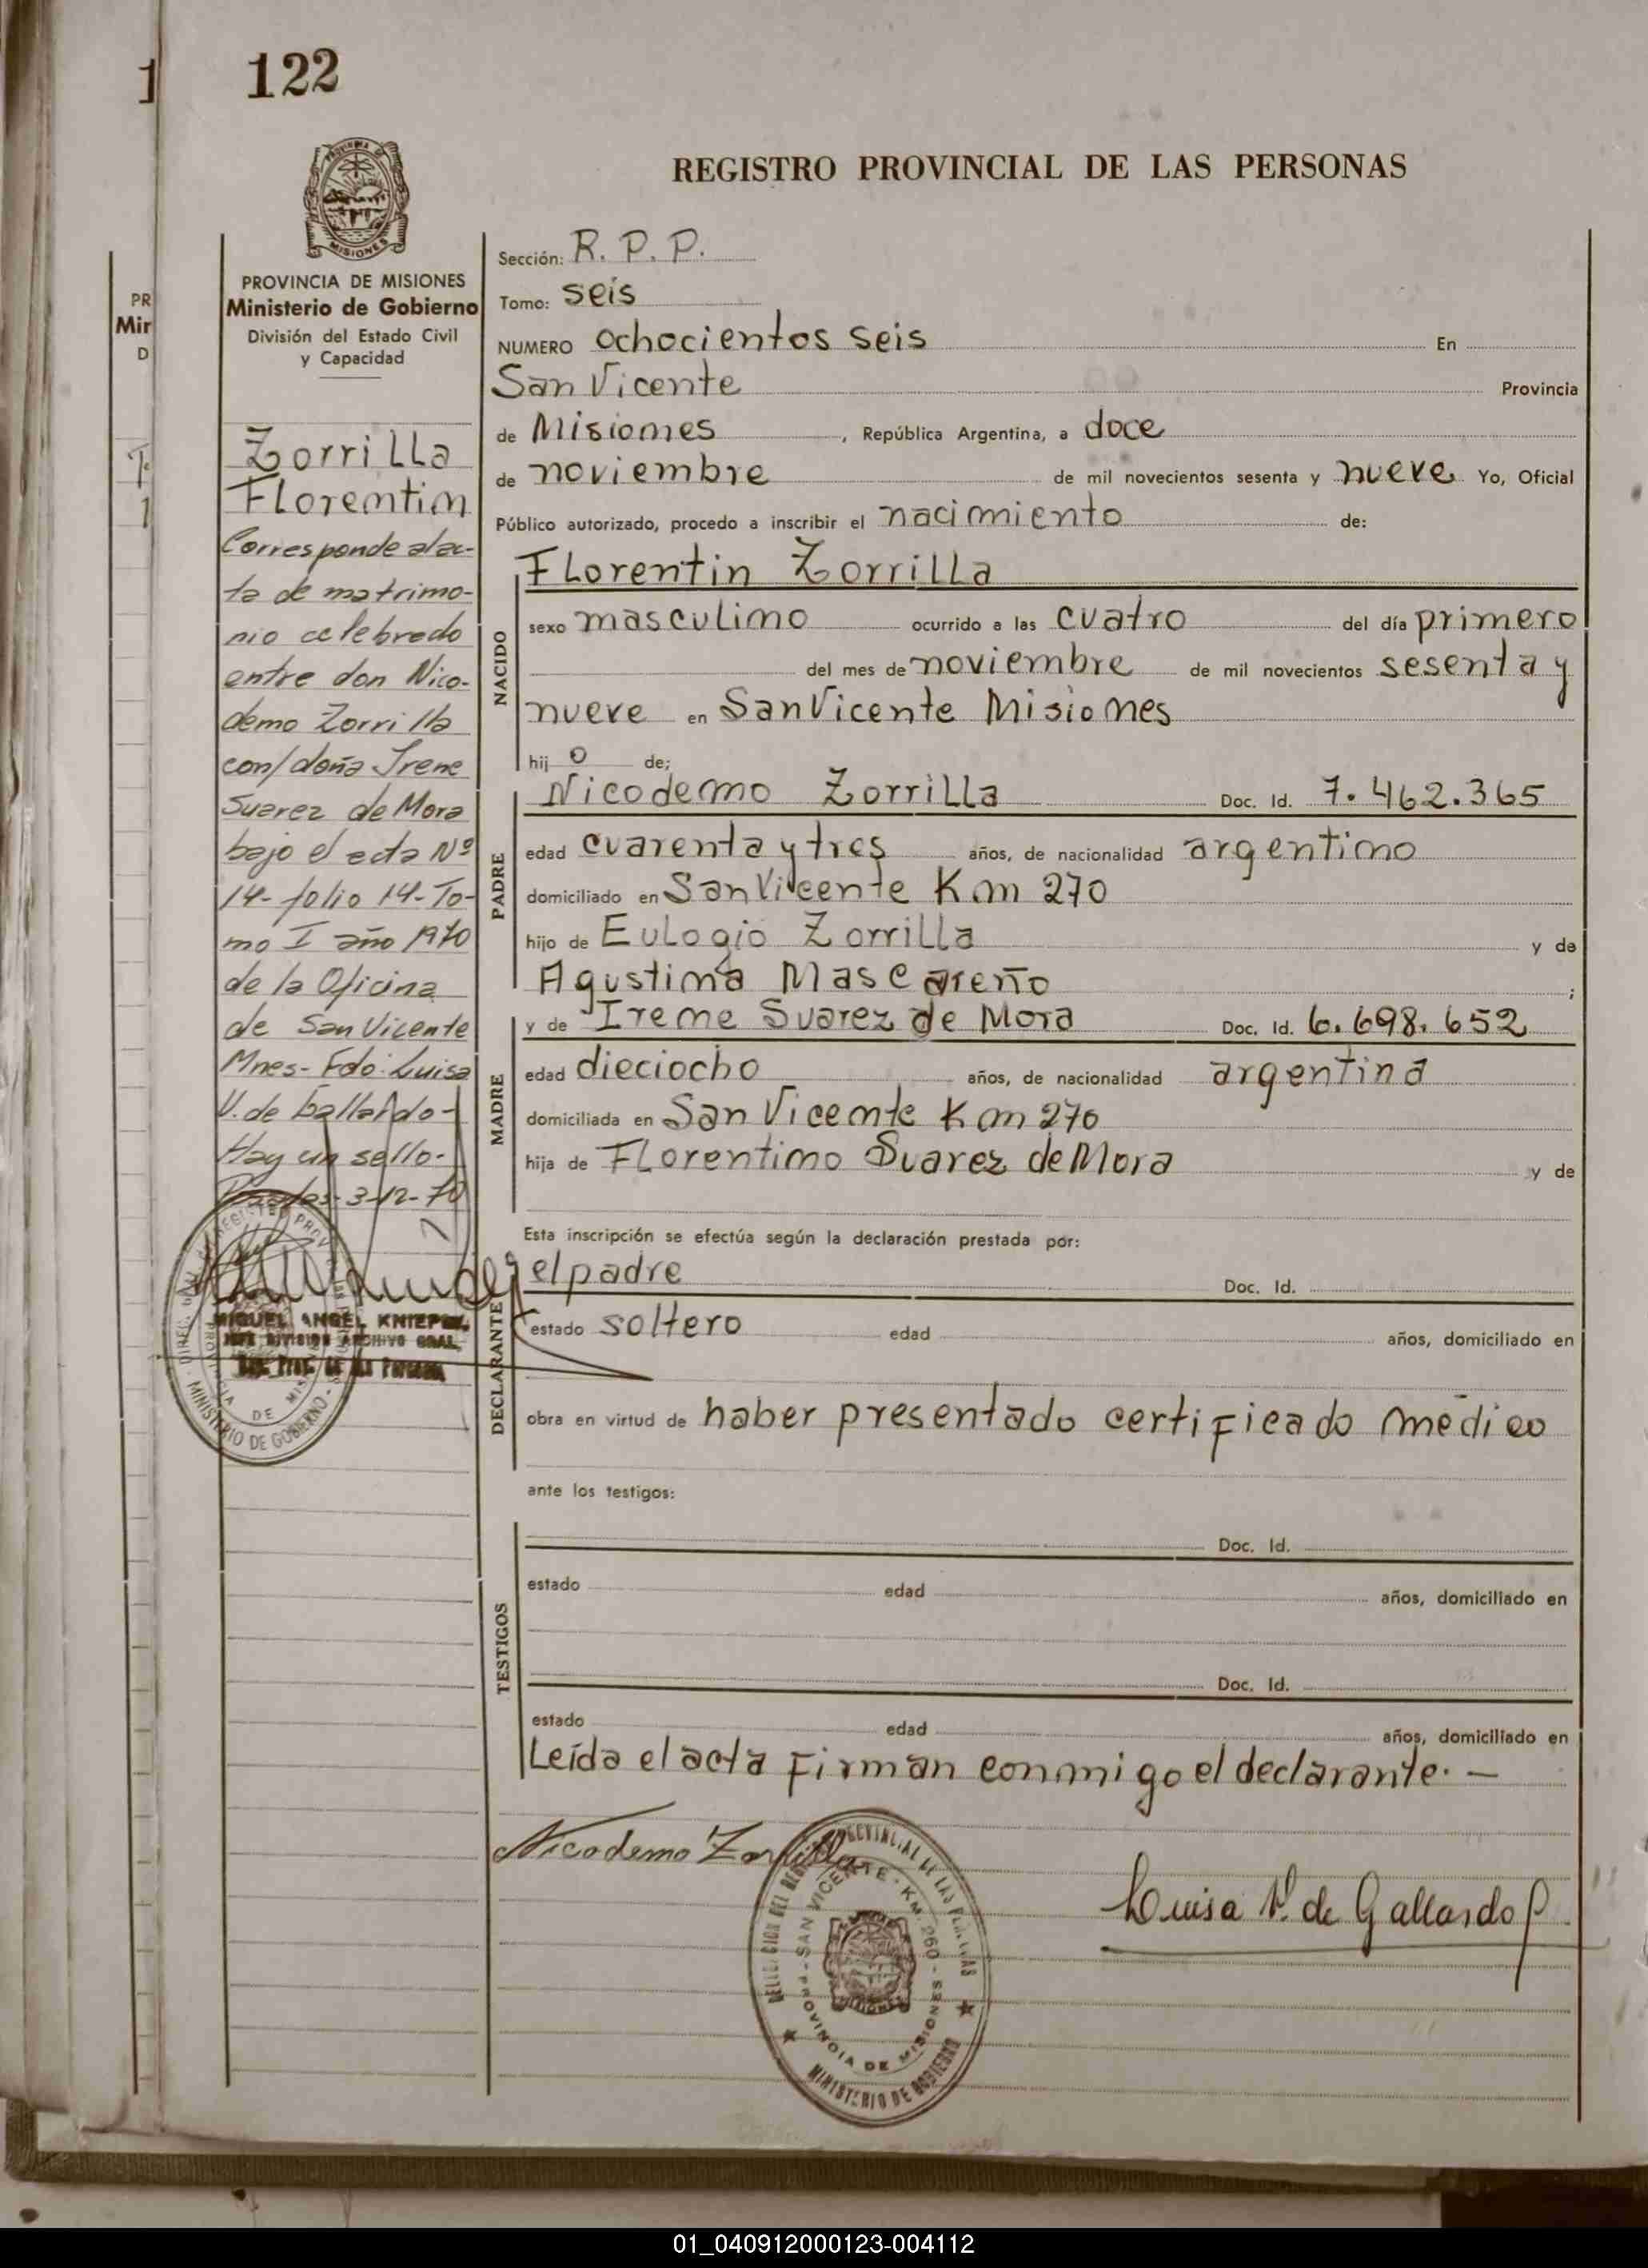 1
122
PROVINCIA DE
MISIONES
REGISTRO PROVINCIAL DE LAS PERSONAS
PR
Mir
D
PROVINCIA DE MISIONES
Ministerio de Gobierno
División del Estado Civil
y Capacidad
Zorrilla
Florentin
Corresponde al ac-
ta de matrimo-
nio celebrado
entre don Nico-
demo Zorrilla
con/doña Irene
Suarez de Mora
bajo el acta Nº
14- folio 14- To-
mo I año 1970
de la Oficina
de San Vicente
Mnes- Fdo: Luisa
V. de Gallardo-
Hay un sello-
Posadas- 3-12-70
MIGUEL ANGEL
JEFE DIVISION ARCHIVO GRAL.
Reg. Prov. de las Personas
MINISTERIO DE GOBIERNO
Sección: R. P. P.
Tomo: seis
NUMERO ochocientos seis En
San Vicente Provincia
de Misiones, República Argentina, a doce
de noviembre de mil novecientos sesenta y nueve Yo, Oficial
Público autorizado, procedo a inscribir el nacimiento de:
NACIDO
Florentin Zorrilla
sexo masculino ocurrido a las cuatro del día primero
del mes de noviembre de mil novecientos sesenta y
nueve en San Vicente Misiones
hij o de;
PADRE
Nicodemo Zorrilla Doc. Id. 7.462.365
edad cuarenta y tres años, de nacionalidad argentino
domiciliado en San Vicente Km 270
hijo de Eulogio Zorrilla y de
Agustina Mascareño ;
MADRE
y de Irene Suarez de Mora Doc. Id. 6.698.652
edad dieciocho años, de nacionalidad argentina
domiciliada en San Vicente Km 270
hija de Florentino Suarez de Mora y de
Esta inscripción se efectúa según la declaración prestada por:
DECLARANTE
el padre Doc. Id.
estado soltero edad años, domiciliado en
obra en virtud de haber presentado certificado médico
ante los testigos:
TESTIGOS
Doc. Id.
estado edad años, domiciliado en
Doc. Id.
estado edad años, domiciliado en
Leída el acta firman conmigo el declarante. —
Nicodemo Zorrilla
Luisa V. de Gallardo
PROVINCIAL DE LAS PERSONAS
SAN VICENTE - KM. 260 - PROVINCIA DE MISIONES
MINISTERIO DE GOBIERNO
01_040912000123-004112